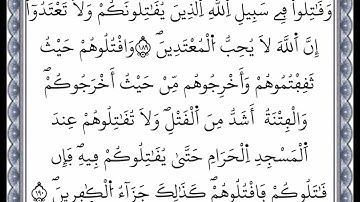 وَقَٰتِلُواْ فِے سَبِيلِ اِ۬للَّهِ اِ۬لذِينَ يُقَٰتِلُونَكُمْ وَلَا تَعْتَدُوٓاْ
إِنَّ اَ۬للَّهَ لَا يُحِبُّ اُ۬لْمُعْتَدِينَۖ ١٨٩ وَاقْتُلُوهُمْ حَيْثُ
ثَقِفْتُمُوهُمْ وَأَخْرِجُوهُم مِّنْ حَيْثُ أَخْرَجُوكُمْۖ
وَالْفِتْنَةُ أَشَدُّ مِنَ اَ۬لْقَتْلِۖ وَلَا تُقَٰتِلُوهُمْ عِندَ
اَ۬لْمَسْجِدِ اِ۬لْحَرَامِ حَتَّىٰ يُقَٰتِلُوكُمْ فِيهِۖ فَإِن
قَٰتَلُوكُمْ فَاقْتُلُوهُمْۖ كَذَٰلِكَ جَزَآءُ اُ۬لْكٰ۪فِرِينَۖ ١٩٠